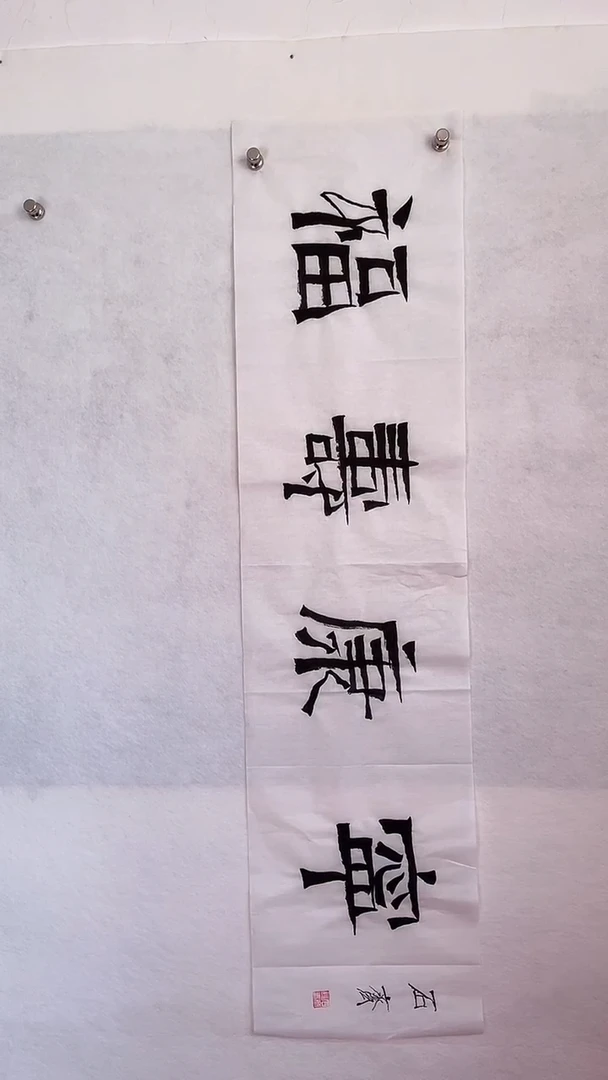 福壽康寧